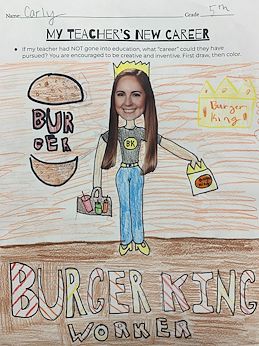 Name Carly Grade 5th
MY TEACHER'S NEW CAREER
If my teacher had NOT gone into education, what "career" could they have
pursued? You are encouraged to be creative and inventive. First draw, then color.
BURGER
Burger
King
BK
BURGER KING
WORKER